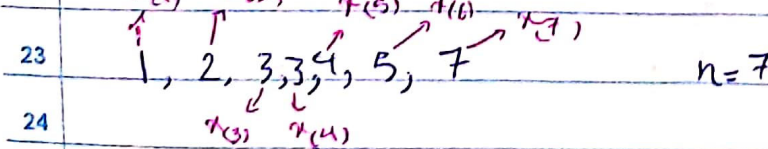 x(5) x(6) x(7)
23 1, 2, 3, 3, 4, 5, 7 n=7
24 x(3) x(4)